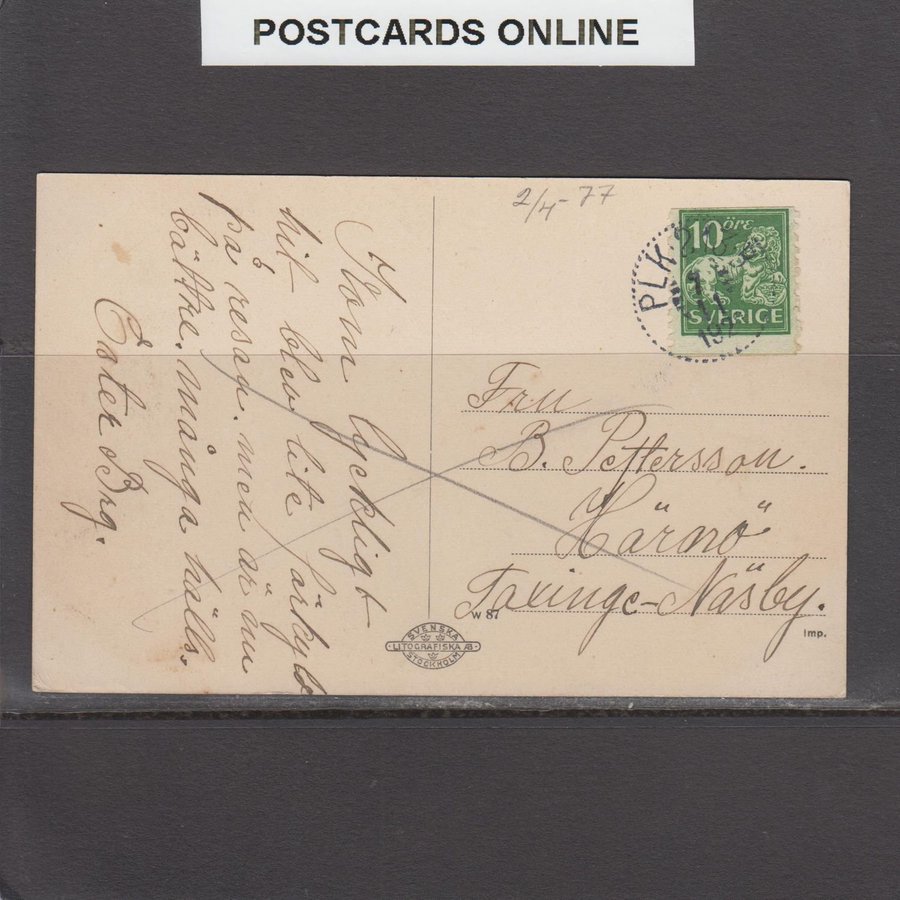 POSTCARDS ONLINE
2/4-77
10 öre
SVERIGE
PLK
192
Kom lyckligt
hit blev lite förkyld
på resan. men är nu
bättre. många hälls.
Ester Brg.
Fru
B. Pettersson.
Härnö
Taxinge-Näsby.
W 87
SVENSKA
LITOGRAFISKA AB
STOCKHOLM
Imp.